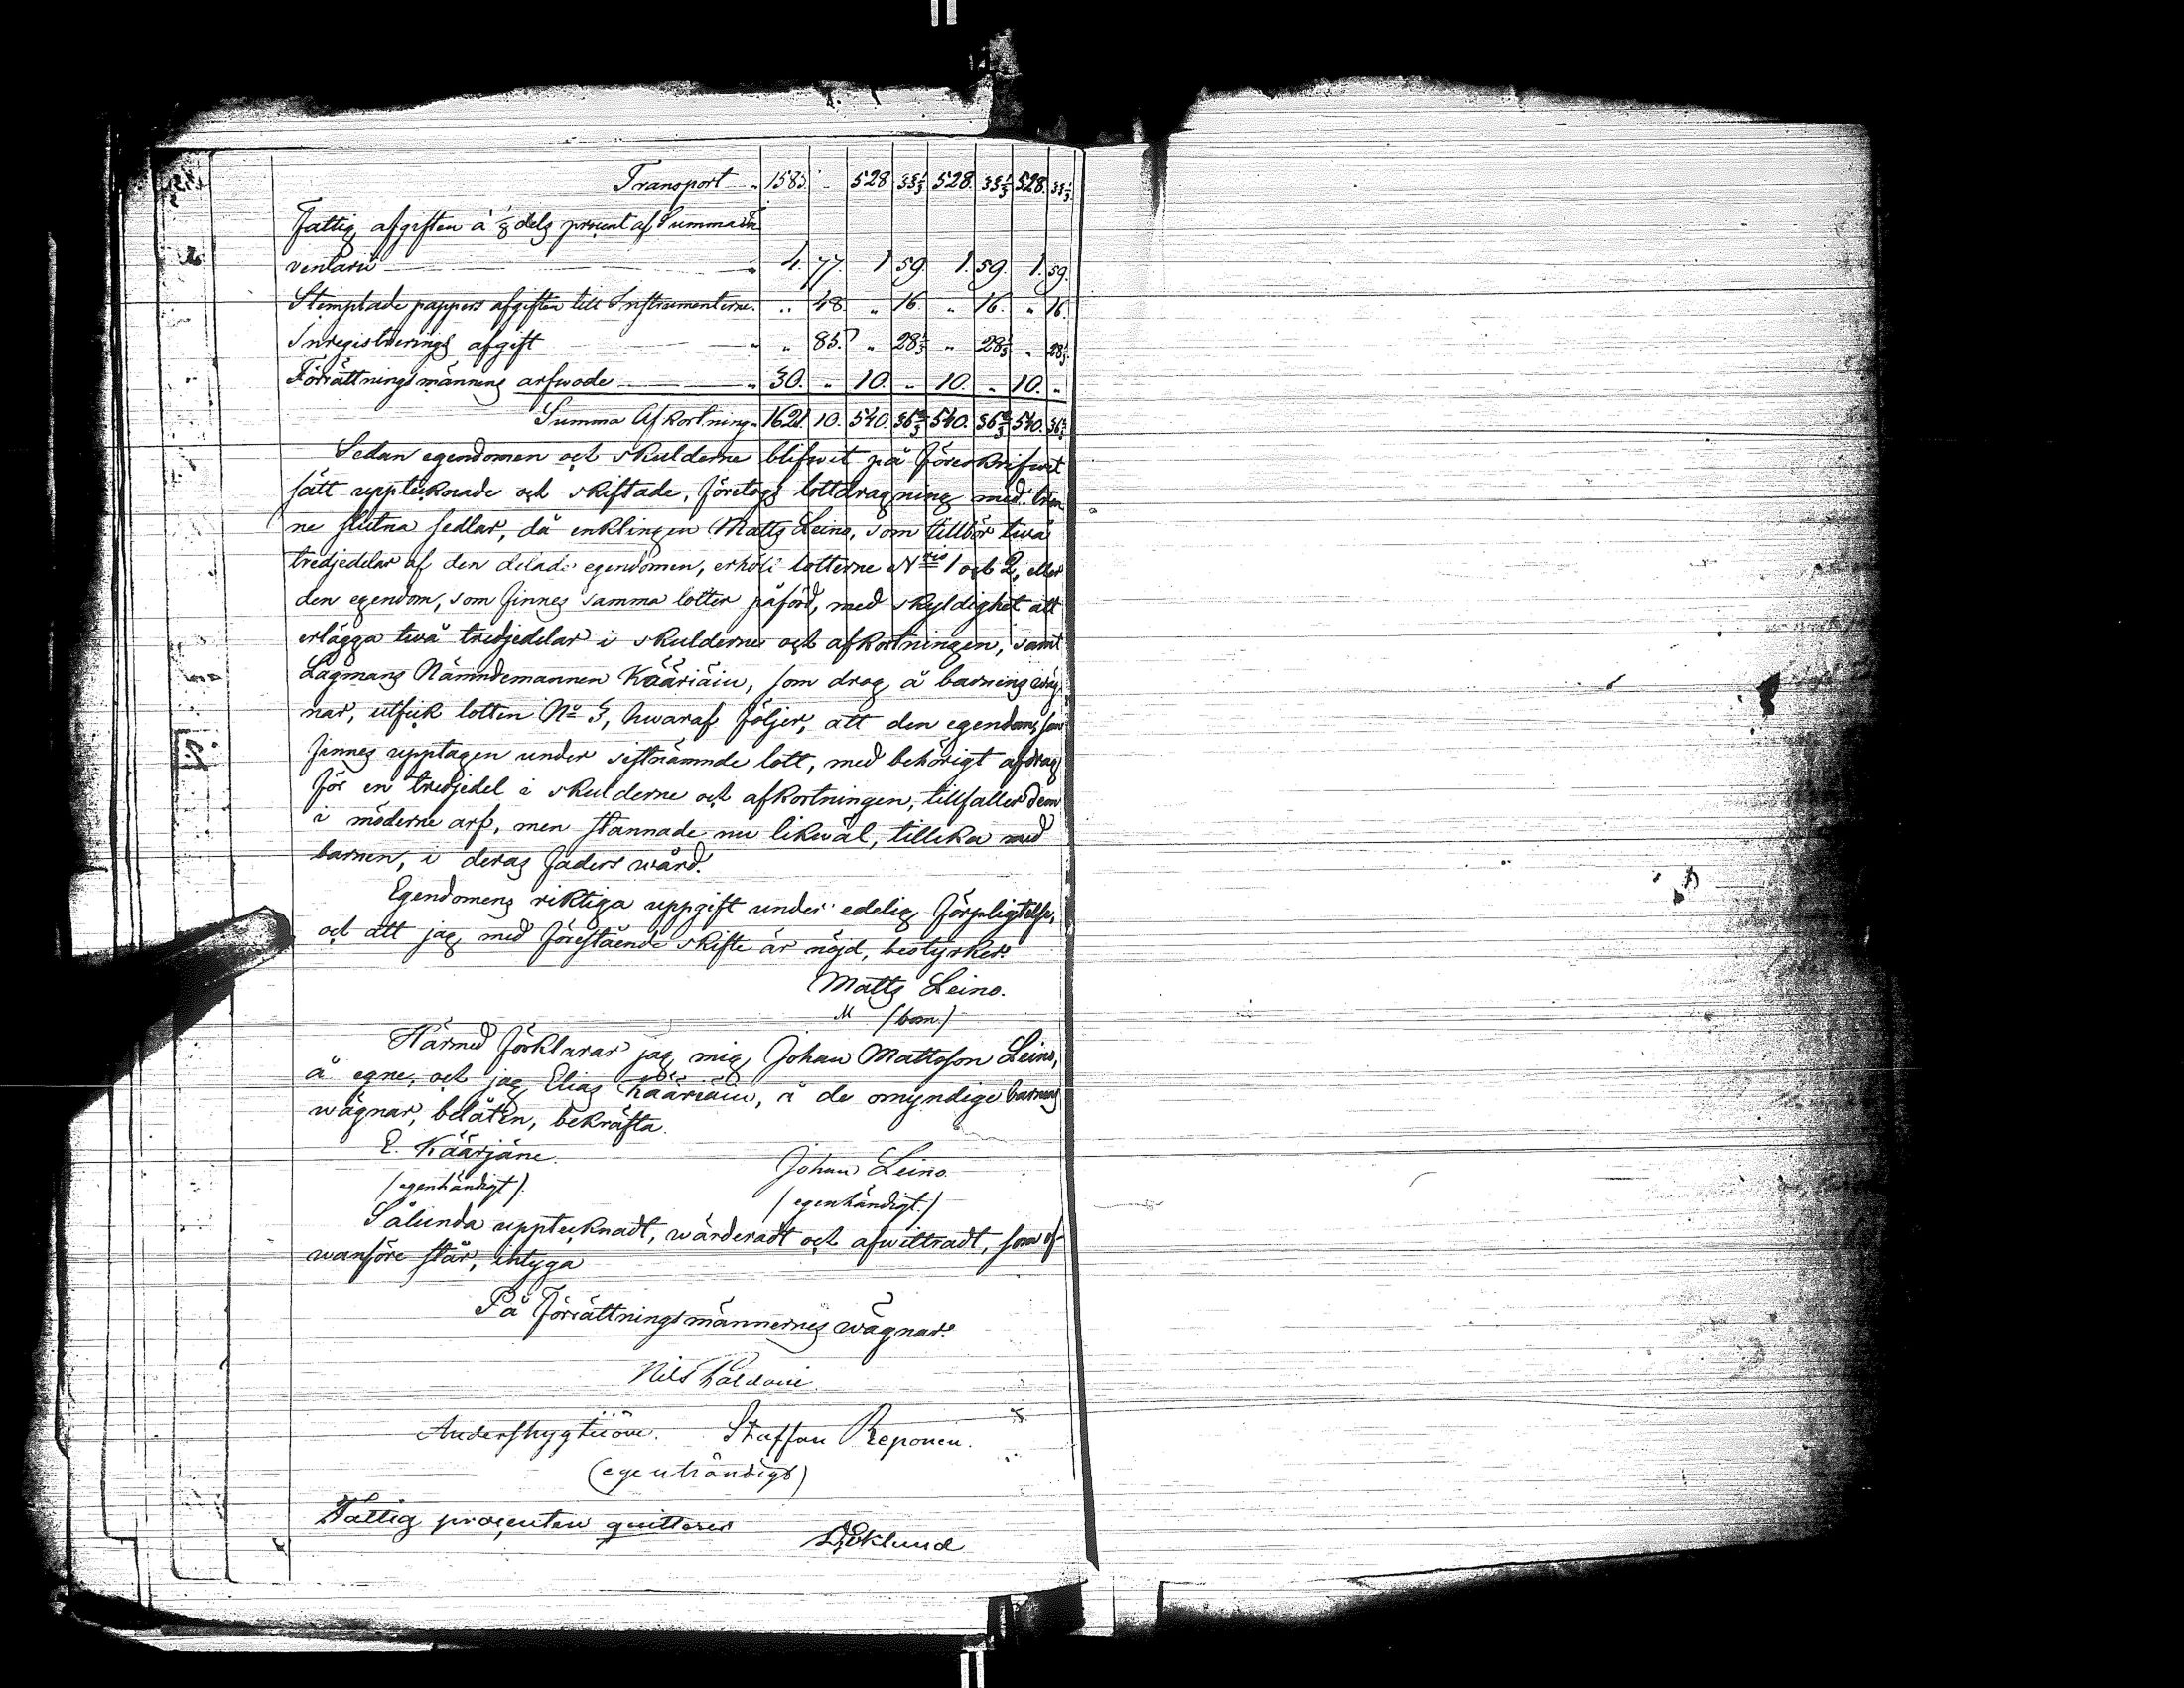 Transport „ 1585. „ 528. 33⅓ 528. 33⅓ 528. 33⅓
Fattig afgiften á ⅛ dels procent af Summa In-
ventarii „ 4. 77. 1 59. 1. 59. 1. 59.
Stemplade pappers afgiften till Instrumenterne. „ 48. „ 16. „ 16. „ 16.
Inregistrerings afgift „ „ 85. „ 28⅓ „ 28⅓ „ 28⅓
Förrättningsmännens arfwode „ 30. „ 10. „ 10. „ 10. „
Summa Afkortning „ 1621. 10. 540. 36⅔ 540. 36⅔ 540. 36⅔
Sedan egendomen och skulderne blifwit på föreskrifwet
sätt upptecknade och skiftade, företogs lottdragning med tren-
ne slutna sedlar, då enklingen Matts Leino, som tillbör twå
tredjedelar af den delade egendomen, erhöll lotterne N:ris 1 och 2, eller
den egendom, som finnes samma lotter påförd, med skyldighet att
erlägga twå tredjedelar i skulderne och afkortningen, samt
Lagmans Nämndemannen Kääriäin, som drog å barnens wäg-
nar, utfick lotten No 3, hwaraf följer, att den egendom, som
finnes upptagen under sistnämnde lott, med behörigt afdrag
för en tredjedel i skulderne och afkortningen, tillfaller dem
i möderne arf, men stannade nu likwäl, tillika med
barnen, i deras faders wård.
Egendomens riktiga uppgift under edelig förpligtelse,
och att jag med förestående skifte är nöjd, bestyrker.
Matts Leino.
M (bom.)
Härmed förklarar jag mig Johan Mattsson Leino,
å egne, och jag Elias Kääriäin, å de omyndige barnens
wägnar, belåten, bekräfta.
E. Käärjäne. Johan Leino.
(egenhändigt). (egenhändigt.)
Sålunda upptecknadt, wärderadt och afwittradt, som of-
wanföre står, intyga
På Förrättningsmännernes wägnar.
Nils
Anders Staffan Reponen.
(egenhändigt)
Fattig procenten quitteres
Eklund